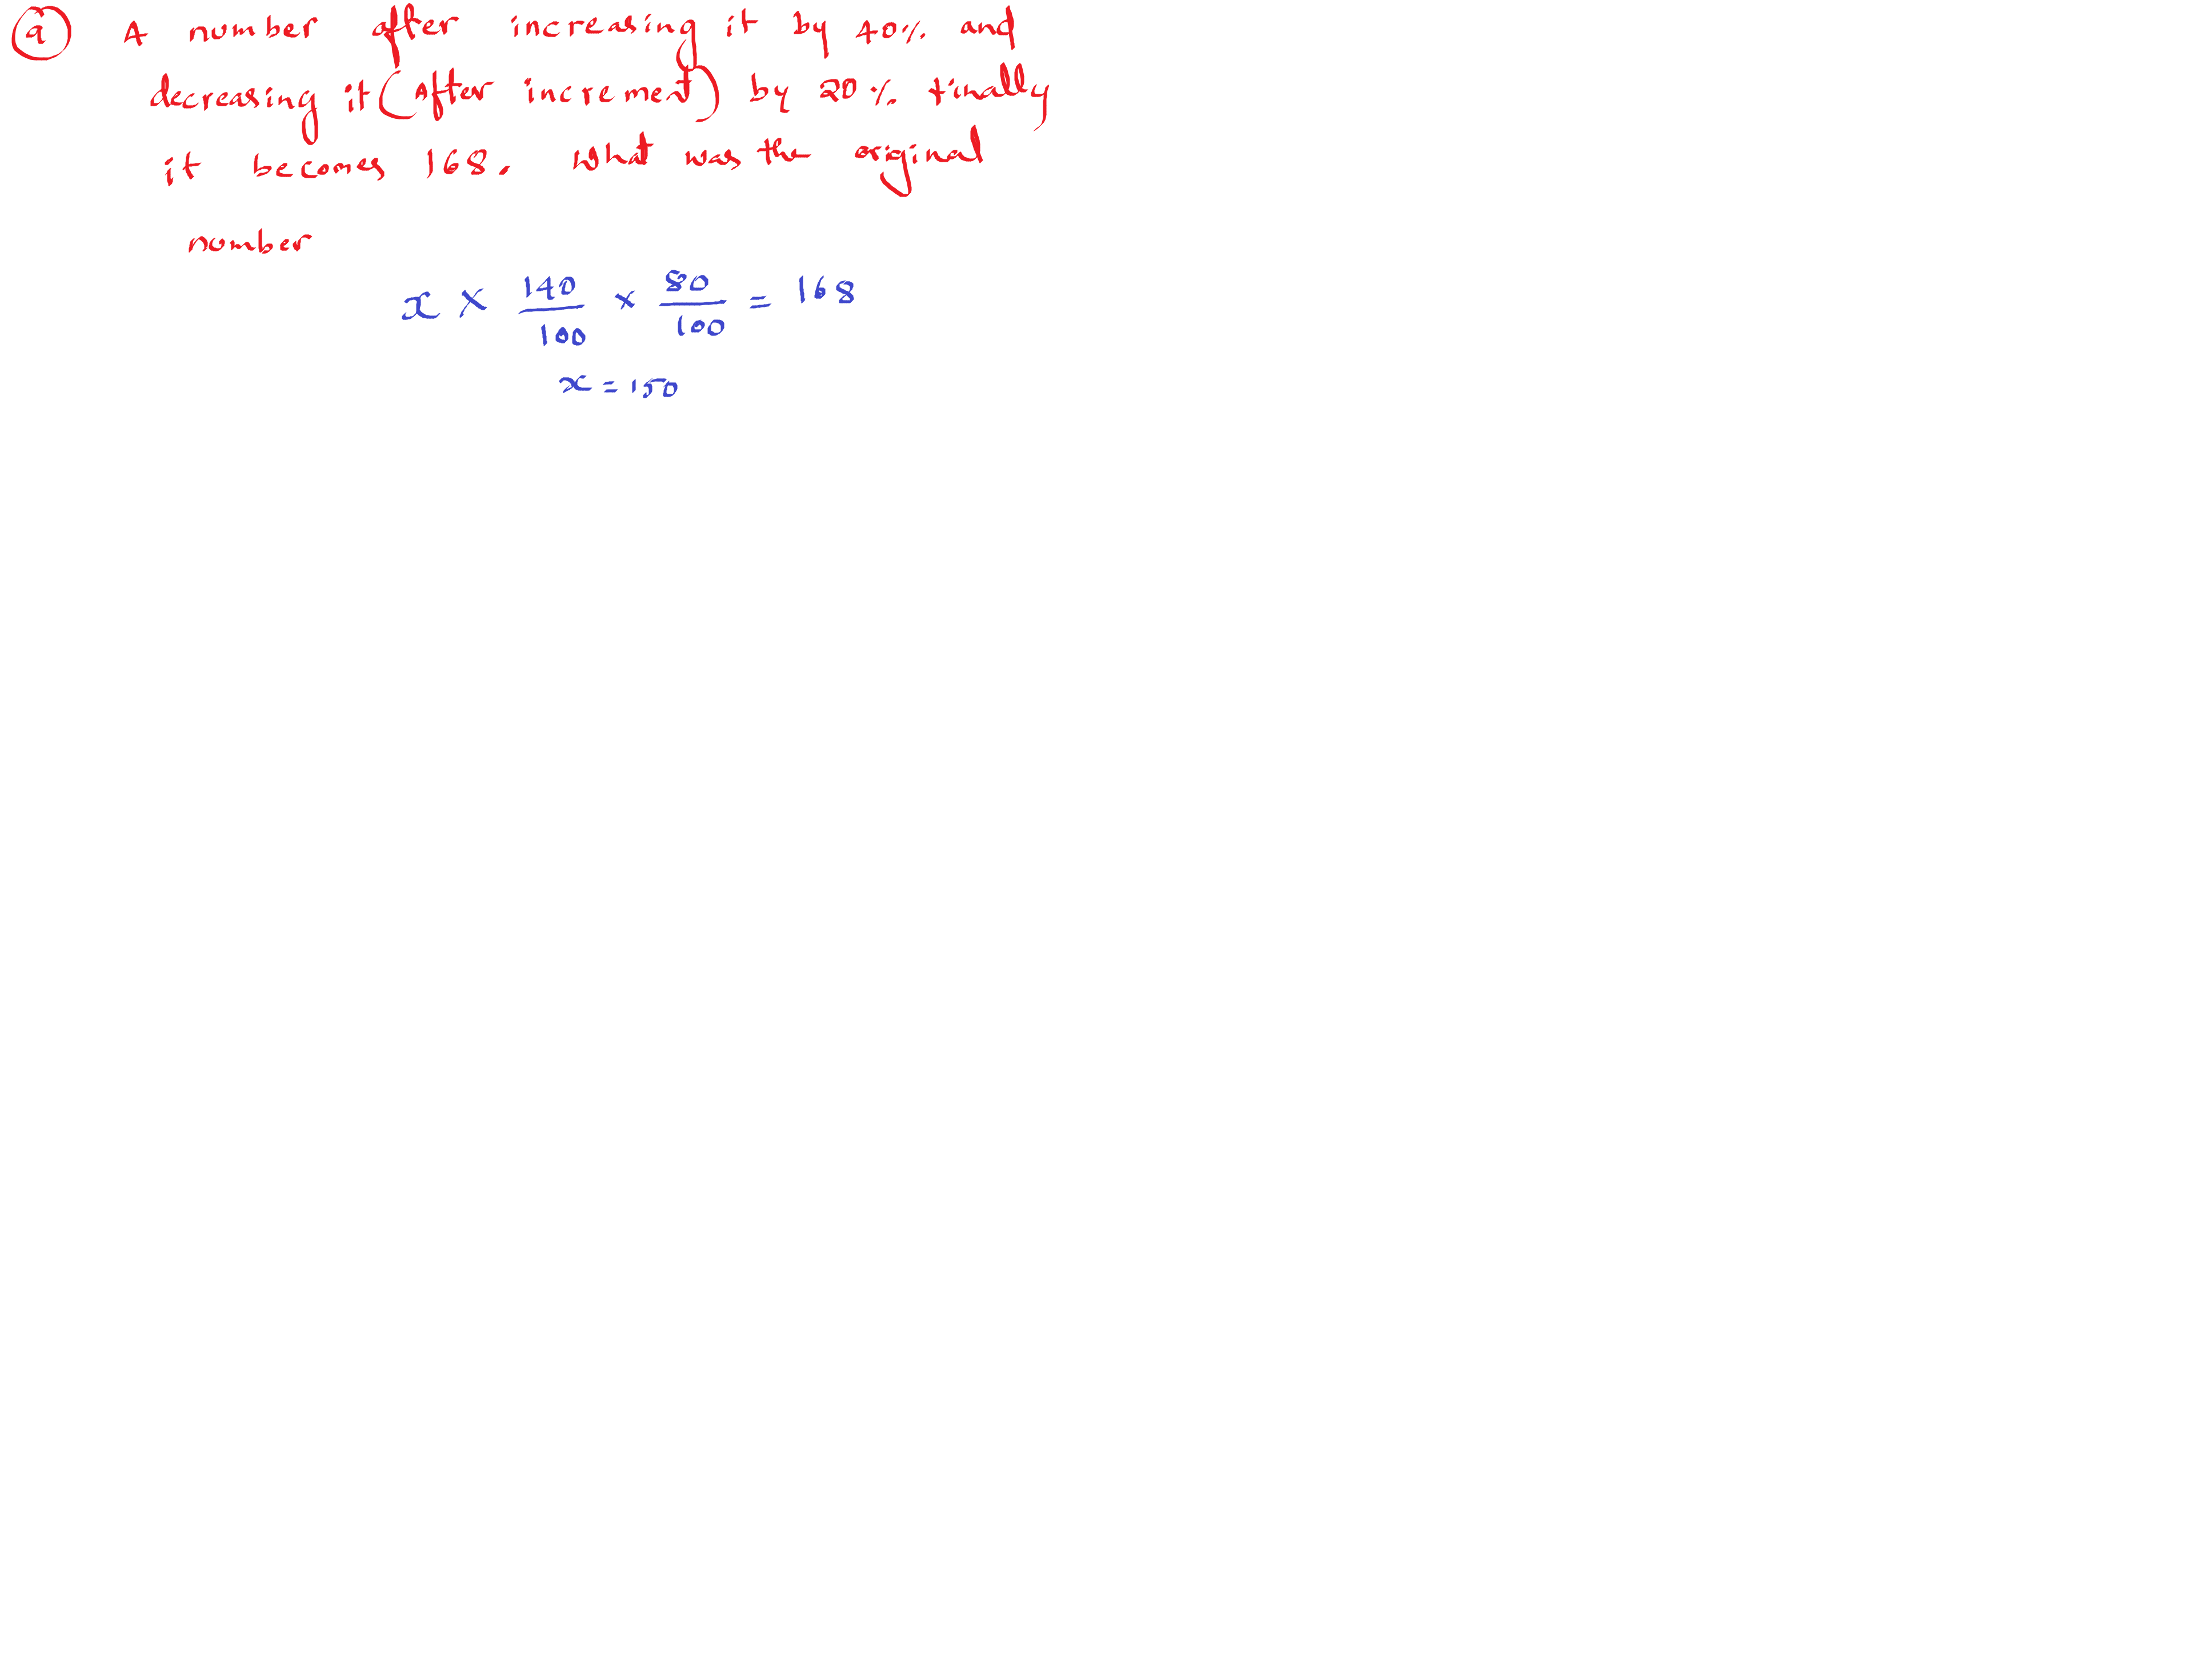 (a) A number after increasing it by 40% and
decreasing it (After increment) by 20% finally
it becomes 168. What was the original
number
x × 140/100 × 80/100 = 168
x = 150